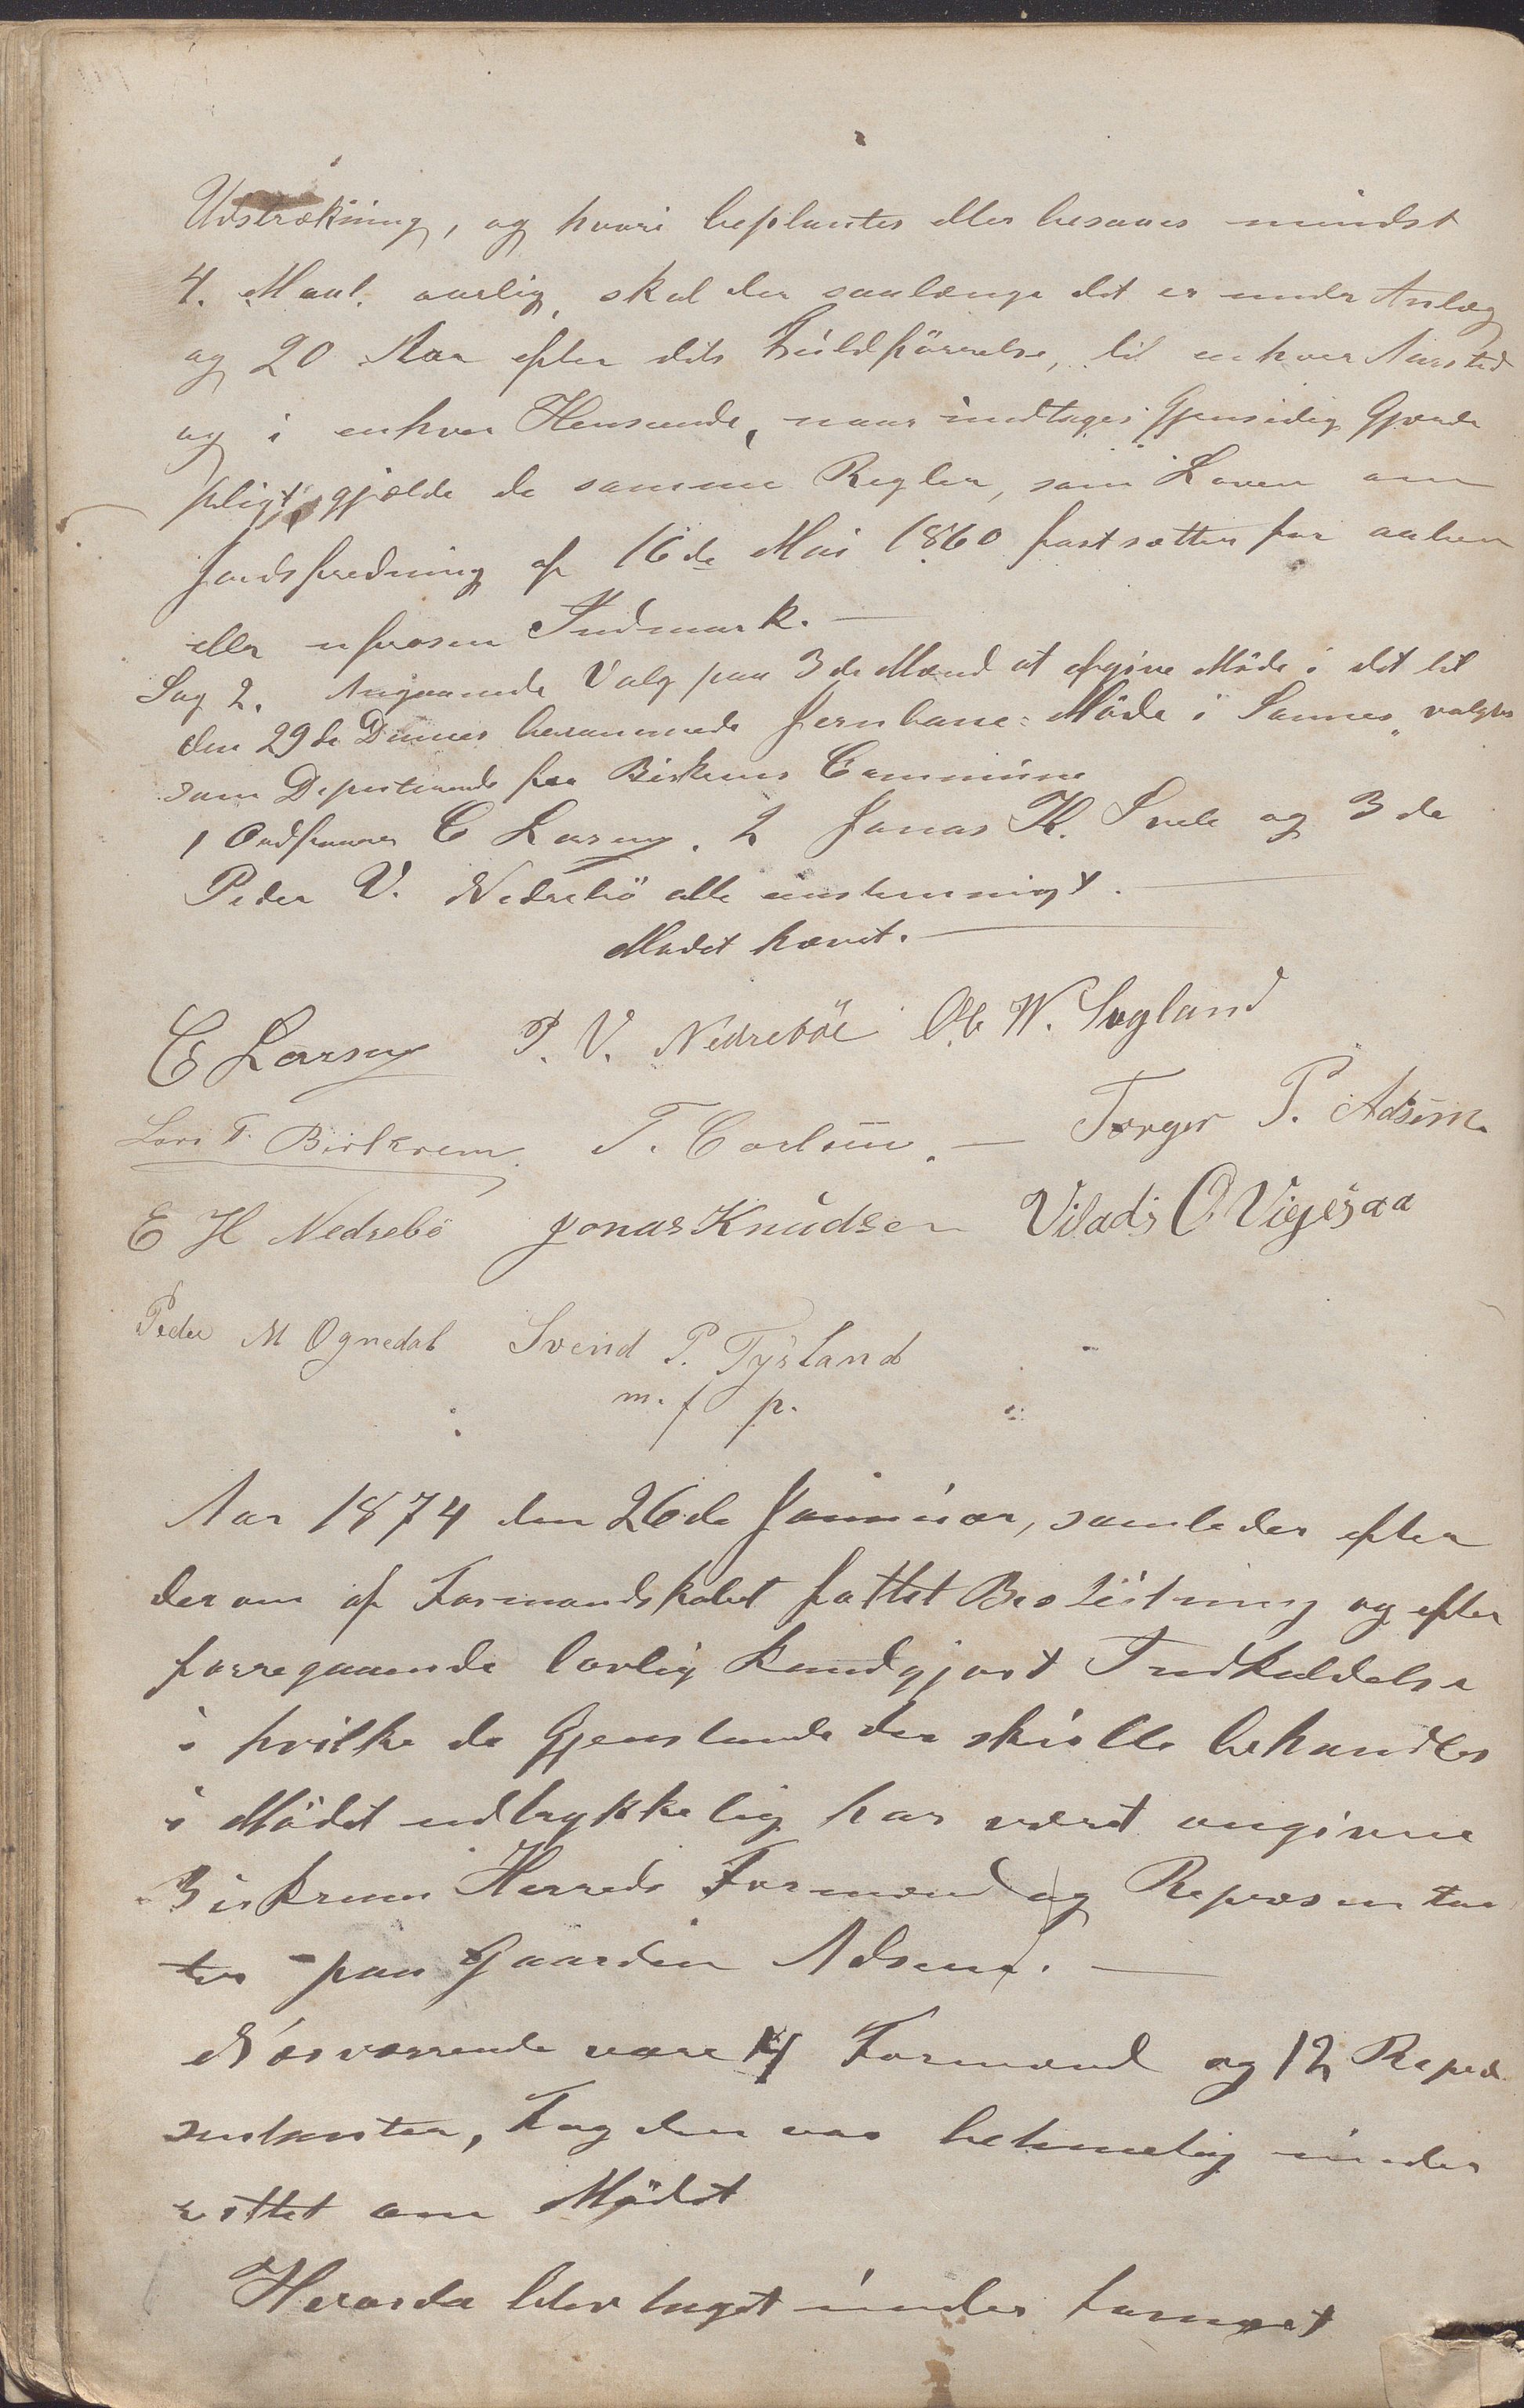 Udstrækning, og hvori beplantes eller besaaes mindst
4. Maal. aarlig, skal der saalænge det er under Anlæg
og 20 Aar efter dets Fuldførrelse, til enhver Aarstid
og i enhver Henseende, naar undtages Gjensidig Gjærde
pligt, gjælde de samme Regler, som Loven om
Jordsfredning af 16de Mai 1860 fastsætter for aaben
eller ufrosen Indmark. —
Sag 2. Angaaende Valg paa 3de Mænd at afgive Møde i det til
den 29de Dennes berammede Jernbane-Møde i Sannes, valgtes
som Deputerende fra Birkrems Commune
1 Ordfører C Larsen. 2 Jonas K. Svele og 3de
Peder V. Nedrebö alle enstemmigt. —
Mødet hævet. —
C Larsen P. V. Nedreböe Ol. W. Sugland
Lars T. Birkrem. T. Carlsen. — Torger P. Adsem.
E H Nedrebö Jonas Knudsen Vilads O Vigesaa
Peder M Ognedal Svend P. Tysland
m. f p.
Aar 1874 den 26de Januuar, samledes efter
derom af Formandskabet fattet Beslutning og efter
forregaaende lovlig kundgjort Indkaldelse
i hvilke de Gjenstande der skulle behandles
i Mødet udtrykkelig har været angivne
Birkrems Herreds Formænd og Repræsentan
ter paa Gaarden Adsem. —
Nærværrende vare 4 Formænd og 12 Repræ
sentanter, Fogden var betimelig under
rettet om Mødet
Herefter blev taget under